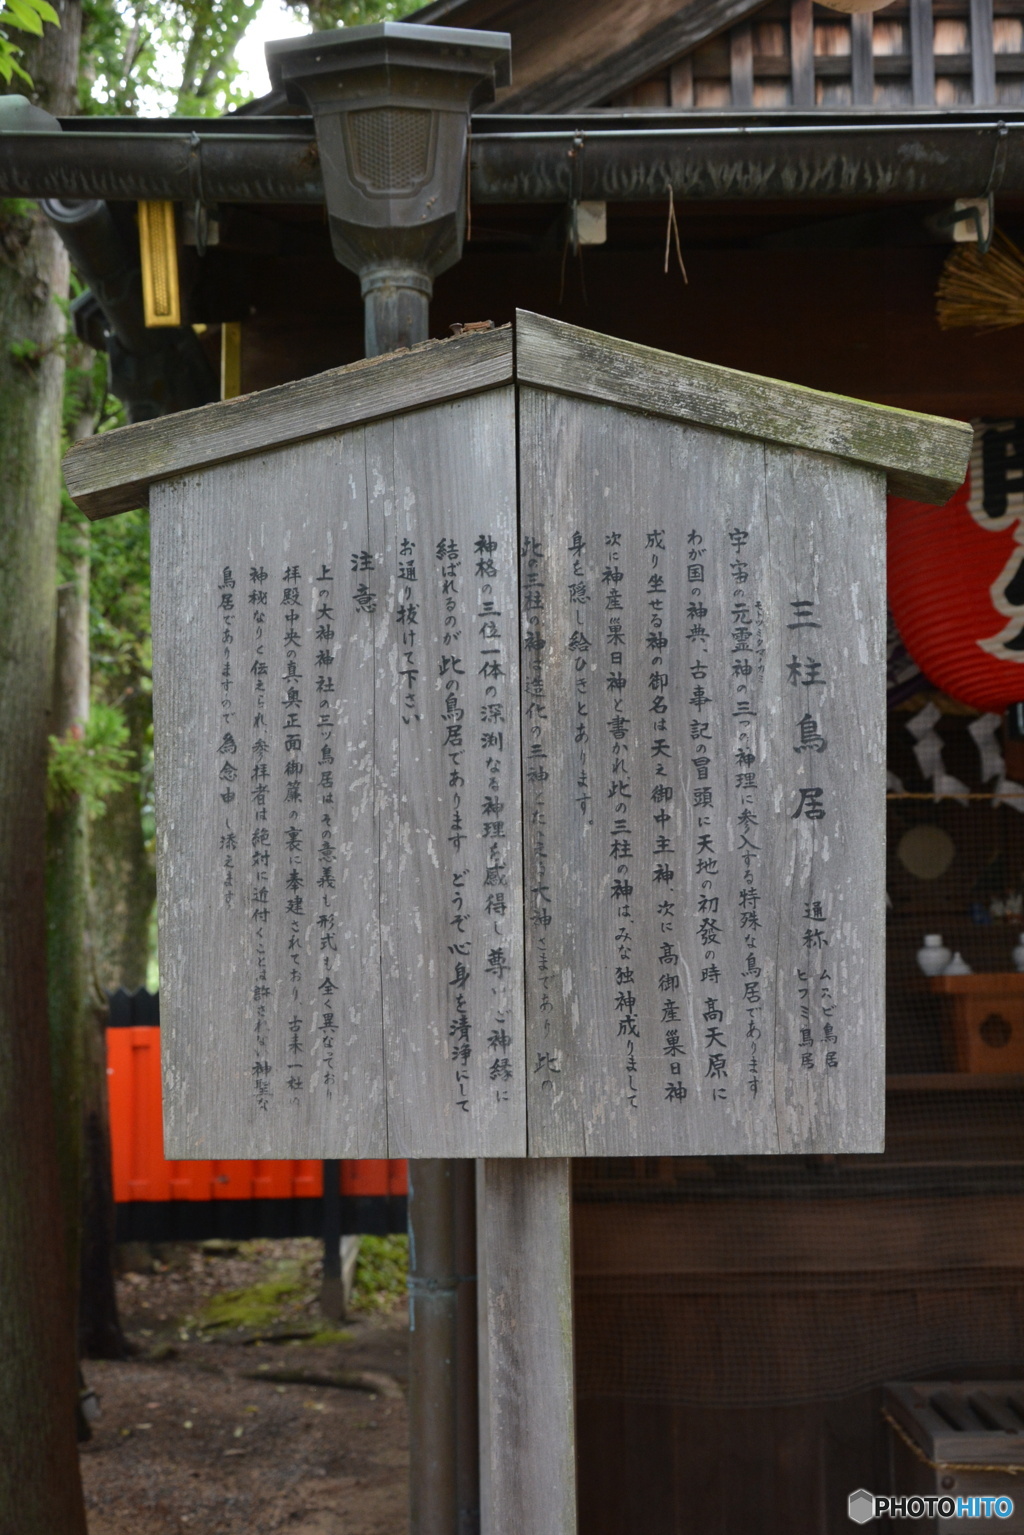 三柱鳥居
通称 ムスビ鳥居
ヒフミ鳥居
宇宙の元霊神の三つの神理に参入する特殊な鳥居であります
モトツミタマノカミ
わが国の神典、古事記の冒頭に天地の初發の時 高天原に
成り坐せる神の御名は天之御中主神、次に高御産巣日神
次に神産巣日神と書かれ此の三柱の神は、みな独神成りまして
身を隠し給ひきとあります。
此の三柱の神は造化の三神とたたえる大神さまであり 此の
神格の三位一体の深渕なる神理を感得し尊いご神縁に
結ばれるのが此の鳥居であります どうぞ心身を清浄にして
お通り抜けて下さい
注意
上の大神神社の三ッ鳥居はその意義も形式も全く異なっており
拝殿中央の真奥正面御簾の裏に奉建されており、古来一社の
神秘なりく伝えられ、参拝者は絶対に近付くことは許されない神聖な
鳥居でありますので為念申し添えます。
PHOTOHITO